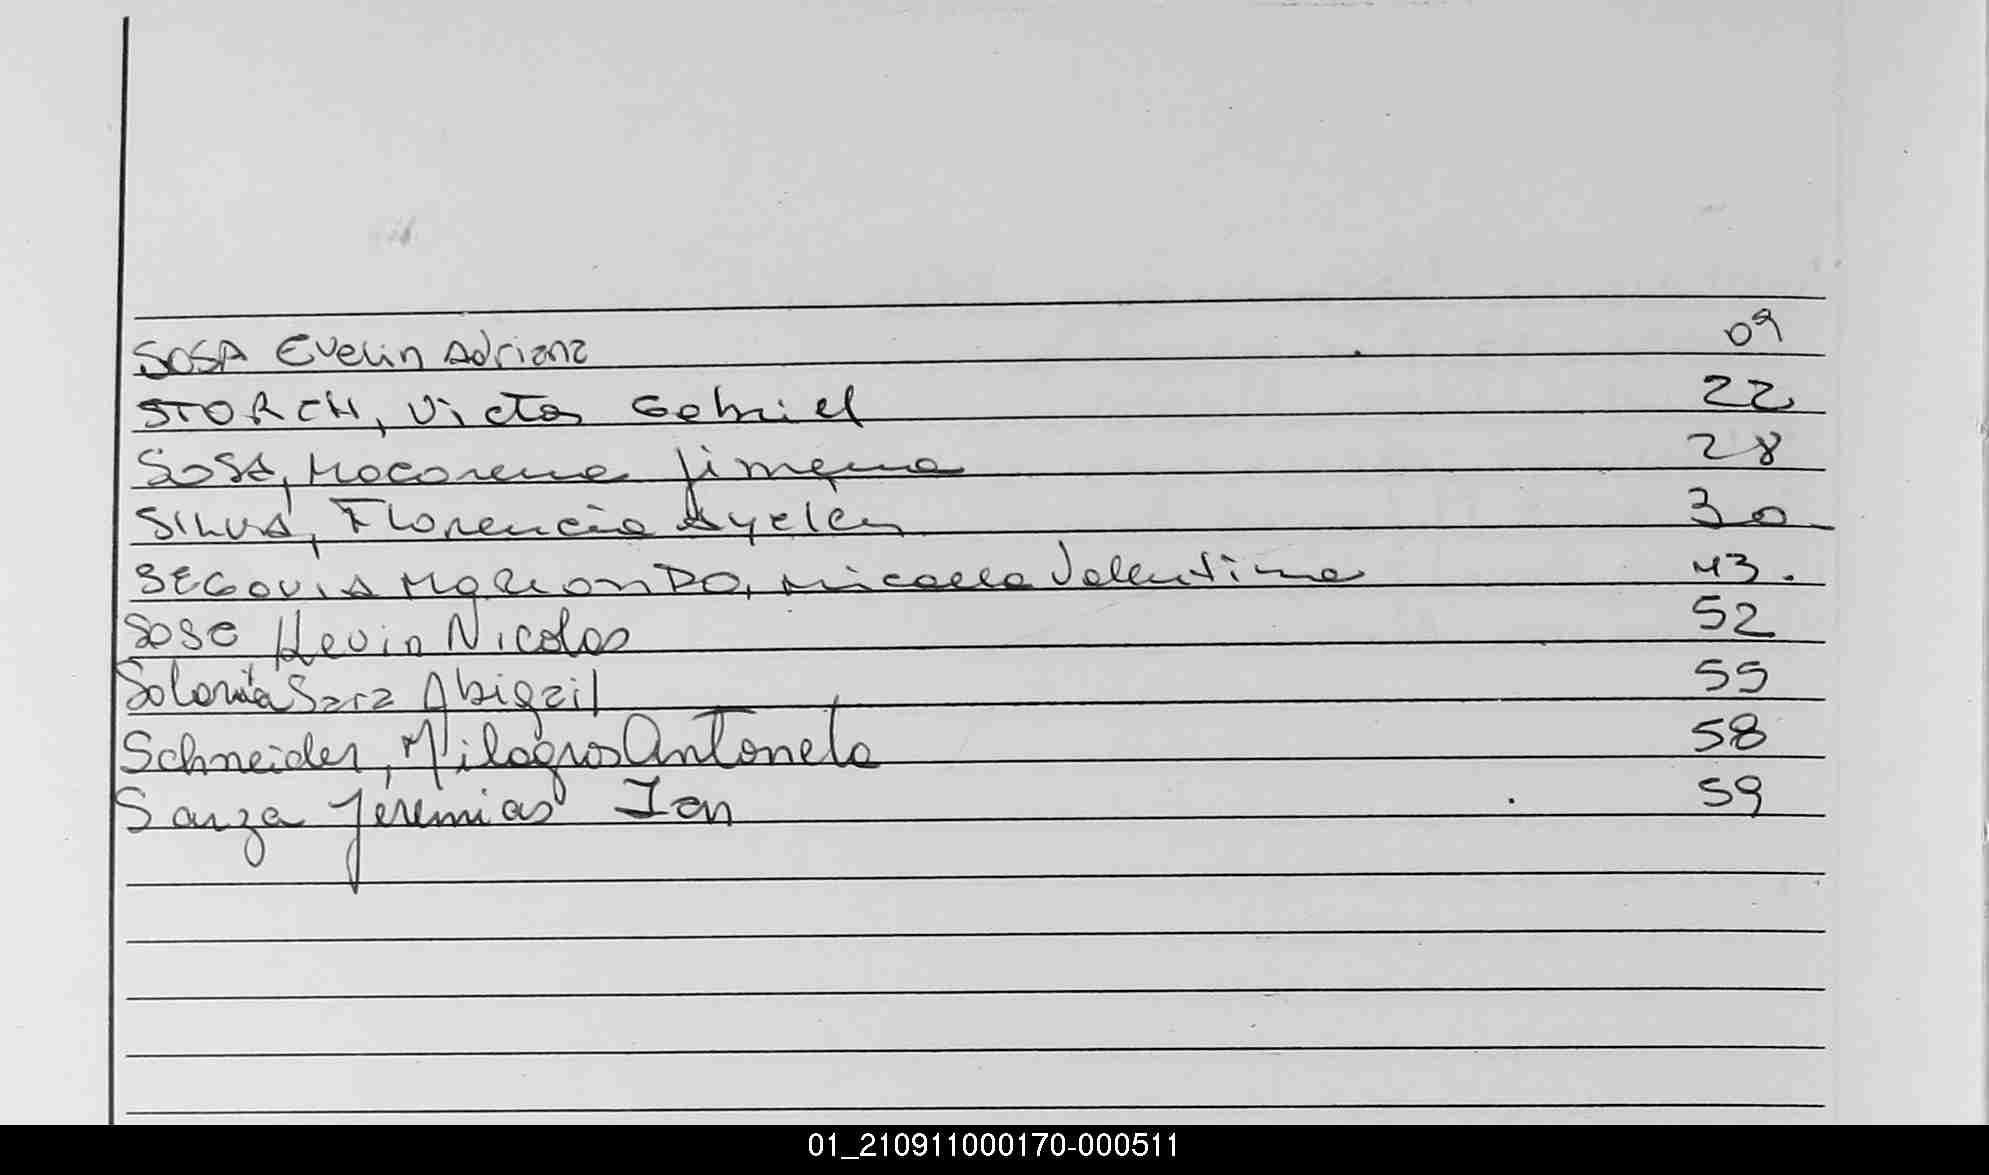 SOSA Evelin Adriana 09
STORCH, Victor Gabriel 22
SOSA, Macarena Jimena 28
SILVA, Florencia Ayelen 30
SEGOVIA, Micaela Valentina 43.
Sosa Kevin Nicolas 52
Sara Abigail 55
Schneider, Milagros Antonela 58
Sanza Jeremias Ian 59
01_210911000170-000511